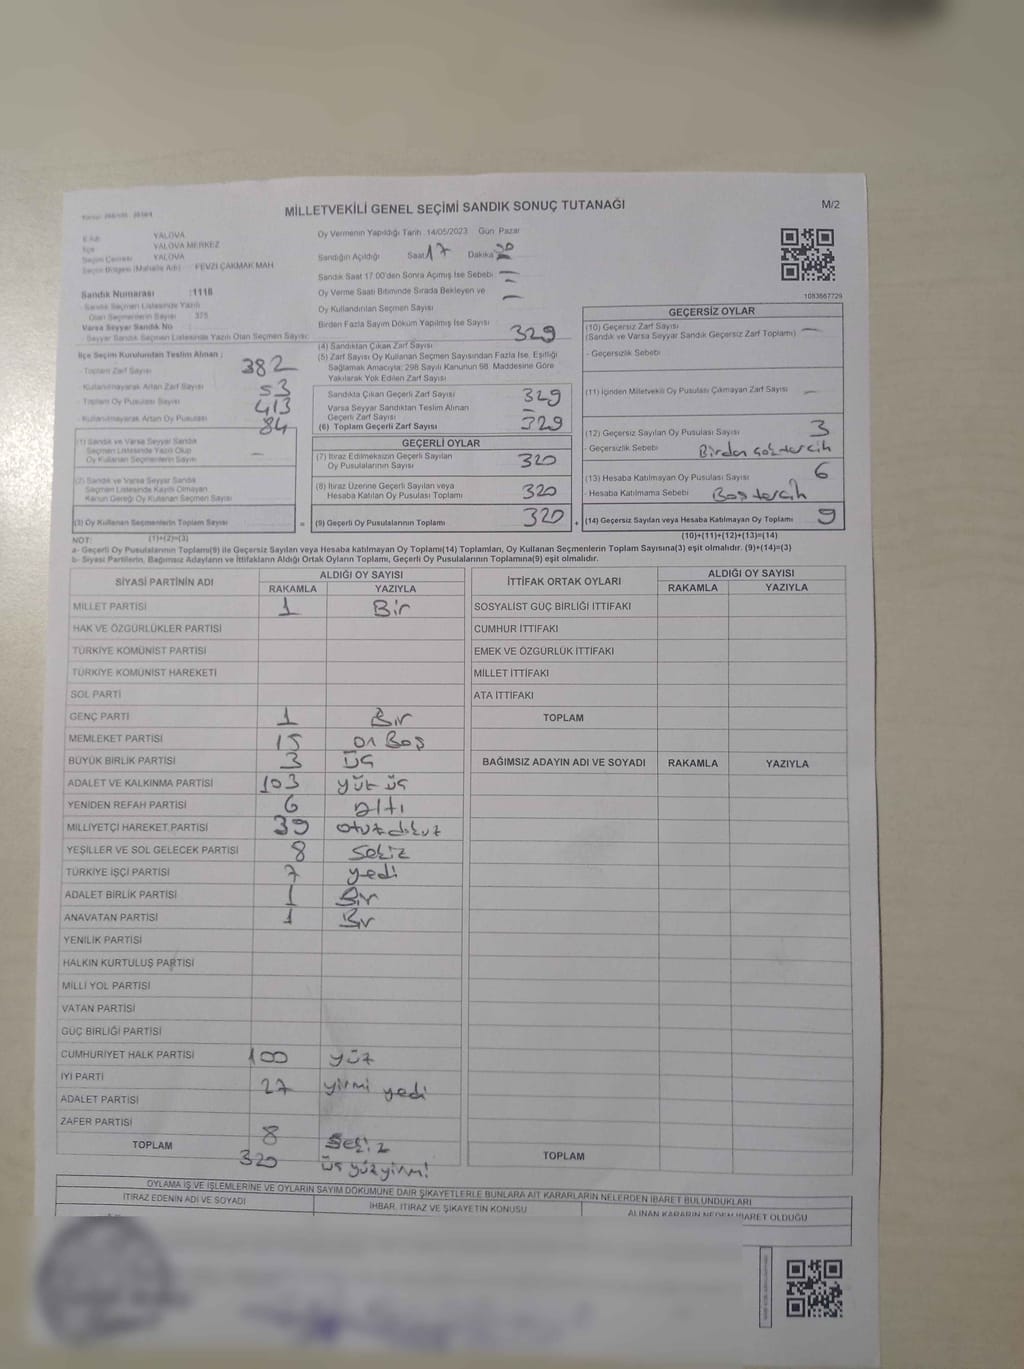 MİLLETVEKİLİ GENEL SEÇİMİ SANDIK SONUÇ TUTANAĞI
M/2
İl Adı YALOVA
İlçe YALOVA MERKEZ
Seçim Çevresi YALOVA
Seçim Bölgesi (Mahalle Adı) FEVZİ ÇAKMAK MAH
Sandık Numarası :1118
Sandık Seçmen Listesinde Yazılı
Olan Seçmenlerin Sayısı 375
Varsa Seyyar Sandık No
Seyyar Sandık Seçmen Listesinde Yazılı Olan Seçmen Sayısı
İlçe Seçim Kurulundan Teslim Alınan ;
Toplam Zarf Sayısı 382
Kullanılmayarak Artan Zarf Sayısı 53
Toplam Oy Pusulası Sayısı 413
Kullanılmayarak Artan Oy Pusulası 84
(1) Sandık ve Varsa Seyyar Sandık
Seçmen Listesinde Yazılı Olup
Oy Kullanan Seçmenlerin Sayısı —
(2) Sandık ve Varsa Seyyar Sandık
Seçmen Listesinde Kayıtlı Olmayan
Kanun Gereği Oy Kullanan Seçmen Sayısı
(3) Oy Kullanan Seçmenlerin Toplam Sayısı =
Oy Vermenin Yapıldığı Tarih 14/05/2023 Gün Pazar
Sandığın Açıldığı Saat 17 Dakika
Sandık Saat 17.00'den Sonra Açılmış İse Sebebi
Oy Verme Saati Bitiminde Sırada Bekleyen ve
Oy Kullandırılan Seçmen Sayısı —
Birden Fazla Sayım Döküm Yapılmış İse Sayısı
(4) Sandıktan Çıkan Zarf Sayısı 329
(5) Zarf Sayısı Oy Kullanan Seçmen Sayısından Fazla İse, Eşitliği
Sağlamak Amacıyla; 298 Sayılı Kanunun 98. Maddesine Göre
Yakılarak Yok Edilen Zarf Sayısı
Sandıkta Çıkan Geçerli Zarf Sayısı 329
Varsa Seyyar Sandıktan Teslim Alınan
Geçerli Zarf Sayısı —
(6) Toplam Geçerli Zarf Sayısı 329
GEÇERLİ OYLAR
(7) İtiraz Edilmeksizin Geçerli Sayılan
Oy Pusulalarının Sayısı 320
(8) İtiraz Üzerine Geçerli Sayılan veya
Hesaba Katılan Oy Pusulası Toplamı 320
(9) Geçerli Oy Pusulalarının Toplamı 320 +
1083667729
GEÇERSİZ OYLAR
(10) Geçersiz Zarf Sayısı —
(Sandık ve Varsa Seyyar Sandık Geçersiz Zarf Toplamı)
- Geçersizlik Sebebi
(11) İçinden Milletvekili Oy Pusulası Çıkmayan Zarf Sayısı —
(12) Geçersiz Sayılan Oy Pusulası Sayısı 3
- Geçersizlik Sebebi Birden çok tercih
(13) Hesaba Katılmayan Oy Pusulası Sayısı 6
- Hesaba Katılmama Sebebi Boş tercih
(14) Geçersiz Sayılan veya Hesaba Katılmayan Oy Toplamı 9
NOT: (1)+(2)=(3) (10)+(11)+(12)+(13)=(14)
a- Geçerli Oy Pusulalarının Toplamı(9) ile Geçersiz Sayılan veya Hesaba katılmayan Oy Toplamı(14) Toplamları, Oy Kullanan Seçmenlerin Toplam Sayısına(3) eşit olmalıdır. (9)+(14)=(3)
b- Siyasi Partilerin, Bağımsız Adayların ve İttifakların Aldığı Ortak Oyların Toplamı, Geçerli Oy Pusulalarının Toplamına(9) eşit olmalıdır.
SİYASİ PARTİNİN ADI ALDIĞI OY SAYISI
RAKAMLA YAZIYLA
MİLLET PARTİSİ 1 Bir
HAK VE ÖZGÜRLÜKLER PARTİSİ
TÜRKİYE KOMÜNİST PARTİSİ
TÜRKİYE KOMÜNİST HAREKETİ
SOL PARTİ
GENÇ PARTİ 1 Bir
MEMLEKET PARTİSİ 15 on Beş
BÜYÜK BİRLİK PARTİSİ 3 üç
ADALET VE KALKINMA PARTİSİ 103 yüz üç
YENİDEN REFAH PARTİSİ 6 altı
MİLLİYETÇİ HAREKET PARTİSİ 39 otuz dokuz
YEŞİLLER VE SOL GELECEK PARTİSİ 8 Sekiz
TÜRKİYE İŞÇİ PARTİSİ 7 yedi
ADALET BİRLİK PARTİSİ 1 Bir
ANAVATAN PARTİSİ 1 Bir
YENİLİK PARTİSİ
HALKIN KURTULUŞ PARTİSİ
MİLLİ YOL PARTİSİ
VATAN PARTİSİ
GÜÇ BİRLİĞİ PARTİSİ
CUMHURİYET HALK PARTİSİ 100 yüz
İYİ PARTİ 27 yirmi yedi
ADALET PARTİSİ
ZAFER PARTİSİ 8 Sekiz
TOPLAM 320 üç yüz yirmi
İTTİFAK ORTAK OYLARI ALDIĞI OY SAYISI
RAKAMLA YAZIYLA
SOSYALİST GÜÇ BİRLİĞİ İTTİFAKI
CUMHUR İTTİFAKI
EMEK VE ÖZGÜRLÜK İTTİFAKI
MİLLET İTTİFAKI
ATA İTTİFAKI
TOPLAM
BAĞIMSIZ ADAYIN ADI VE SOYADI RAKAMLA YAZIYLA
TOPLAM
OYLAMA İŞ VE İŞLEMLERİNE VE OYLARIN SAYIM DÖKÜMÜNE DAİR ŞİKAYETLERLE BUNLARA AİT KARARLARIN NELERDEN İBARET BULUNDUKLARI
İTİRAZ EDENİN ADI VE SOYADI İHBAR, İTİRAZ VE ŞİKAYETİN KONUSU ALINAN KARARIN NEDEN İBARET OLDUĞU